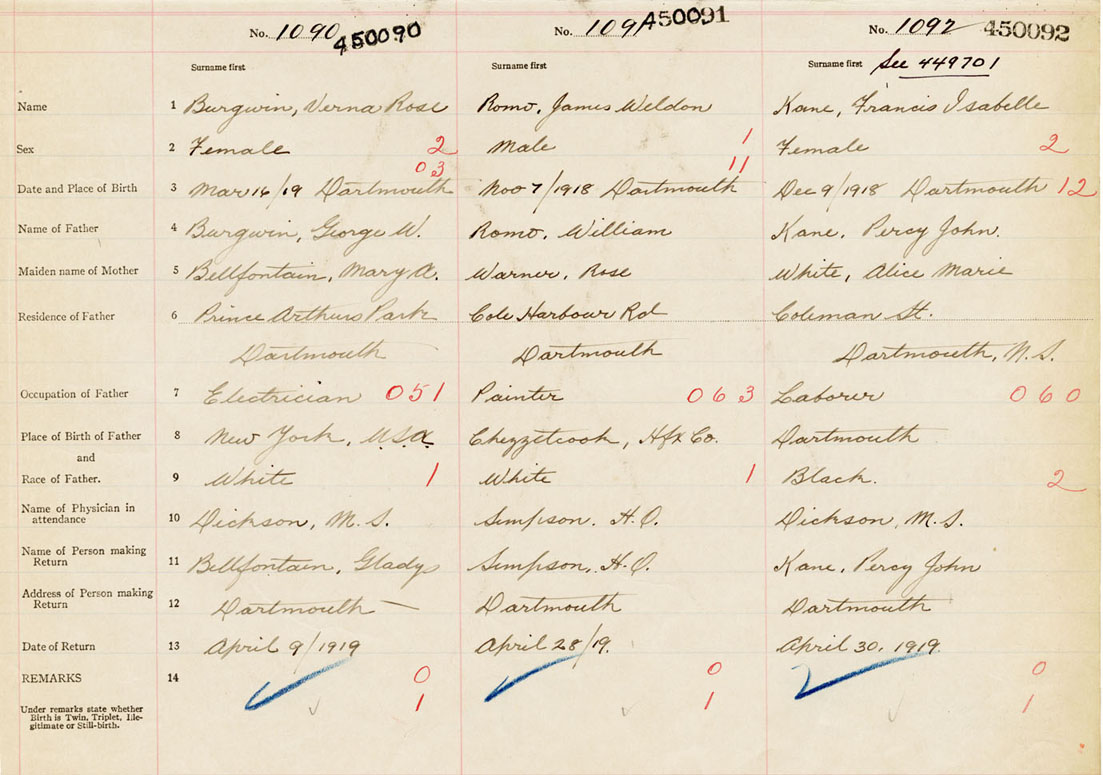 No. 1090 450090 No. 1091 450091 No. 1092 450092
Surname first Surname first Surname first See 449701
Name 1 Burgwin, Verna Rose Romo, James Weldon Kane, Francis Isabelle
Sex 2 Female 2 Male 1 Female 2
03 11
Date and Place of Birth 3 Mar 16/19 Dartmouth Nov 7/1918 Dartmouth Dec 9/1918 Dartmouth 12
Name of Father 4 Burgwin, George W. Romo, William Kane, Percy John.
Maiden name of Mother 5 Bellfontain, Mary A. Warner, Rose White, Alice Marie
Residence of Father 6 Prince Arthurs Park Cole Harbour Rd Coleman St.
Dartmouth Dartmouth Dartmouth, N.S.
Occupation of Father 7 Electrician 051 Painter 063 Laborer 060
Place of Birth of Father 8 New York, U.S.A. Chezzetcook, Hfx Co. Dartmouth
and
Race of Father. 9 White 1 White 1 Black. 2
Name of Physician in
attendance 10 Dickson, M.S. Simpson. H.O. Dickson, M.S.
Name of Person making
Return 11 Bellfontain, Gladys Simpson, H.O. Kane, Percy John
Address of Person making
Return 12 Dartmouth Dartmouth Dartmouth
Date of Return 13 April 9/1919 April 28/19. April 30, 1919.
REMARKS 14 0 0 0
Under remarks state whether 1 1 1
Birth is Twin, Triplet, Ille-
gitimate or Still-birth.